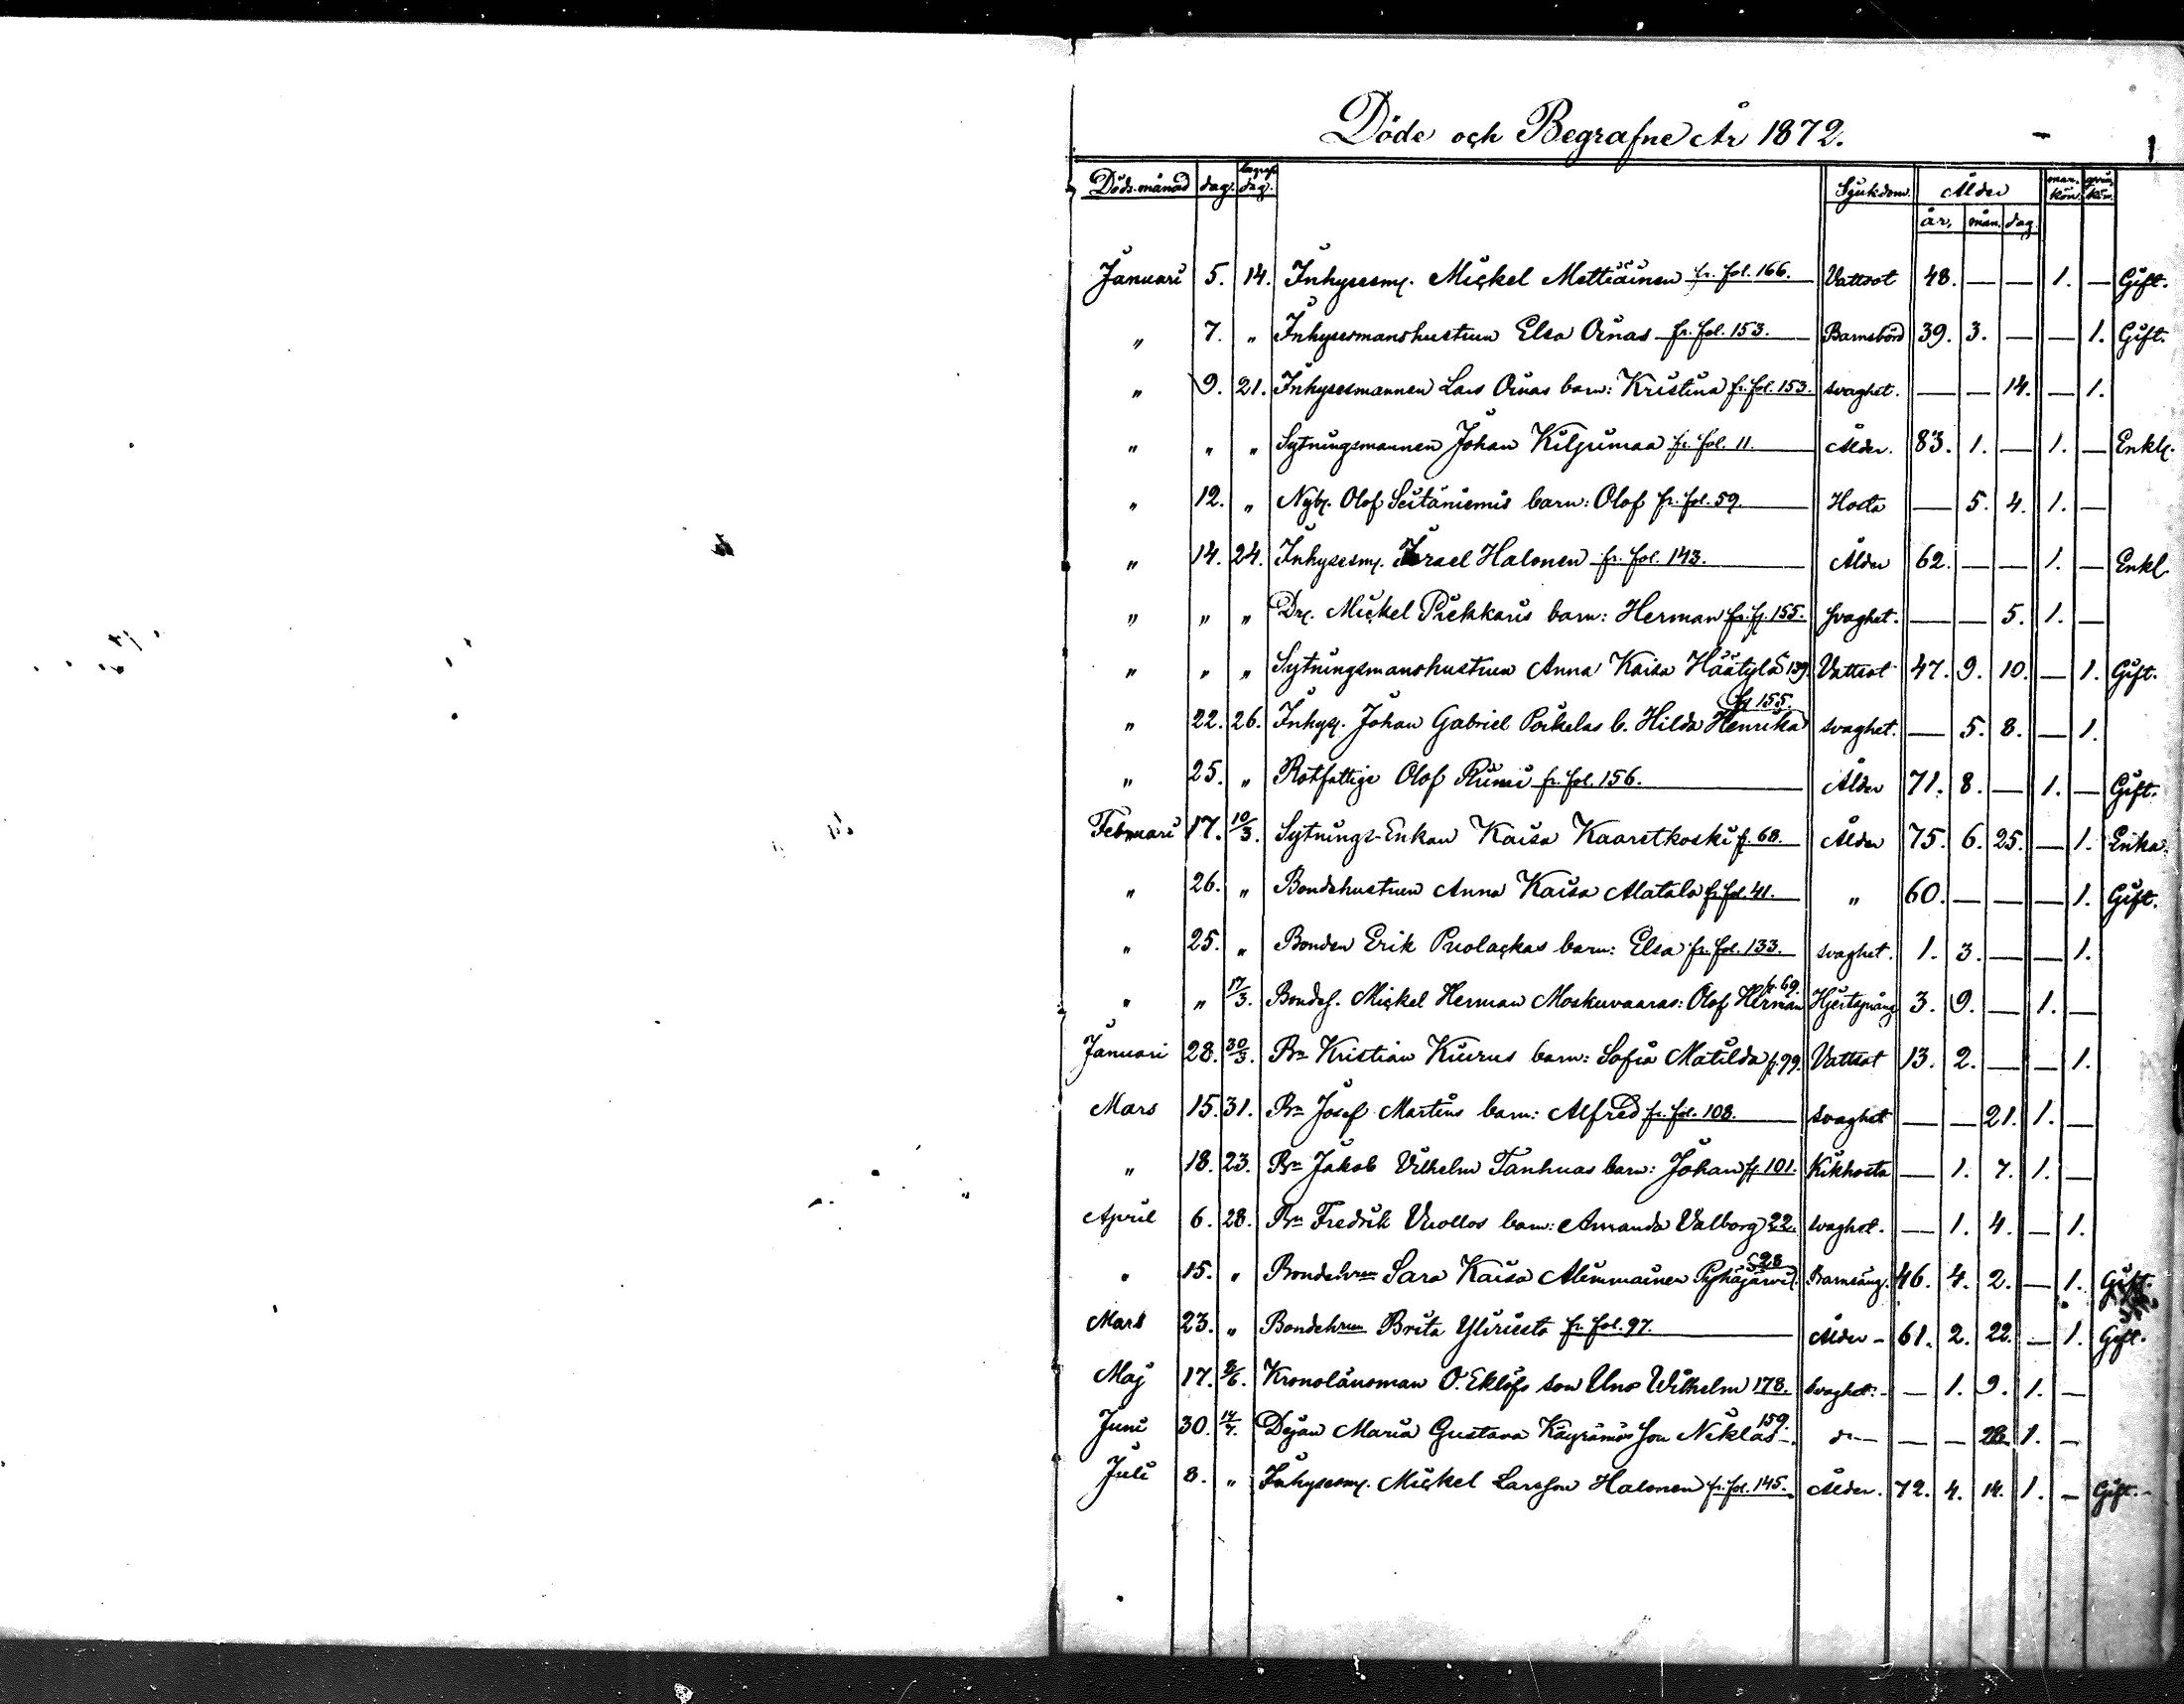 Döde och Begrafne År 1872.
1
Döds-månad dag. begrafn. dag. Sjukdom. Ålder man-kön. qvin-kön.
år. mån. dag.
Januari 5. 14. Inhysesm. Mickel Mettiäinen fr. fol. 166. Vattsot 48. — — 1. — Gift.
" 7. " Inhysesmanshustrun Elsa Oinas fr. fol. 153. Barnsbörd 39. 3. — — 1. Gift.
" 9. 21. Inhysesmannen Lars Oinas barn: Kristina fr. fol. 153. svaghet. — — 14. — 1.
" " " Sytningsmannen Johan Kiljumaa fr. fol. 11. Ålder. 83. 1. — 1. — Enkl.
" 12. " Nyb. Olof Seitäniemis barn: Olof fr. fol. 59. Hosta — 5. 4. 1. —
" 14. 24. Inhysesm. Israel Halonen fr. fol. 143. Ålder 62. — — 1. — Enkl.
" " " Dr. Mickel Piekkaris barn: Herman fr. f. 155. svaghet. — — 5. 1. —
" " " Sytningsmanshustrun Anna Kaisa Häätylä S 139. Vattsot 47. 9. 10. — 1. Gift.
f. 155.
" 22. 26. Inhys. Johan Gabriel Poikelas b. Hilda Henrika svaghet. — 5. 8. — 1.
" 25. " Rotfattige Olof Riimi fr. fol. 156. Ålder 71. 8. — 1. — Gift.
Februari 17. 10/3. Sytnings-Enkan Kaisa Kaaretkoski f. 68. Ålder 75. 6. 25. — 1. Enka.
" 26. " Bondehustrun Anna Kaisa Alatalo fr. fol. 41. " 60. — — — 1. Gift.
" 25. " Bonden Erik Puolackas barn: Elsa fr. fol. 133. svaghet. 1. 3. — — 1.
fr. 69.
" " 17/3. Bondes. Mickel Herman Moskuvaaras: Olof Herman 3. 9. — 1. —
Januari 28. 30/3. Bn Kristian Kiirus barn: Sofia Matilda f. 99. Vattsot 13. 2. — — 1.
Mars 15. 31. Bn Josef Martins barn: Alfred fr. fol. 108. svaghet — — 21. 1. —
" 18. 23. Bn Jakob Vilhelm Tanhuas barn: Johan f. 101. Kikhosta — 1. 7. 1. —
April 6. 28. Bn Fredrik Vuollos barn: Amanda Valborg 22. svaghet. — 1. 4. — 1.
S 28
" 15. " Bondehrun Sara Kaisa Alimmainen Pyhäjärvi. Barnsäng. 46. 4. 2. — 1. Gift.
Mars 23. " Bondehrun Brita Yliriesto fr. fol. 97. Ålder – 61. 2. 22. — 1. Gift.
Maj 17. 2/6. Kronolänsman O. Eklöfs son Uno Wilhelm 178. svaghet. — 1. 9. 1. —
159.
Juni 30. 14/7. Dejan Maria Gustava Käyrämös son Niklas — d:— — — 28. 1. —
Juli 8. " Inhysesm. Mickel Larsson Halonen fr. fol. 145. Ålder. 72. 4. 14. 1. — Gift.